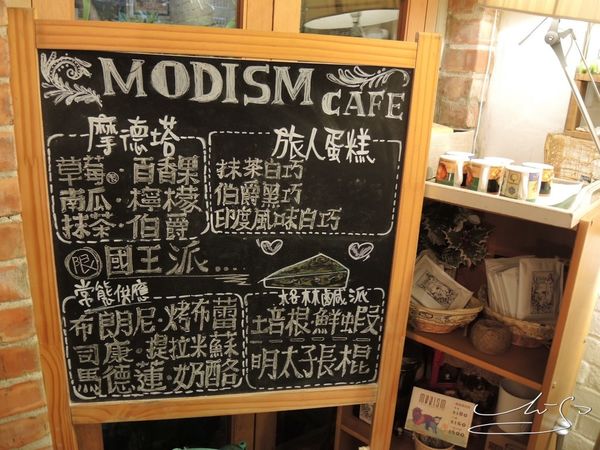 MODISM CAFE
摩德塔
草莓 限 · 百香果
南瓜 · 檸檬
抹茶 · 伯爵
旅人蛋糕
抹茶白巧
伯爵黑巧
印度風味白巧
限 國王派...
常態供應
布朗尼 · 烤布蕾
司康 · 提拉米蘇
馬德蓮 · 奶酪
格林鹹派
培根鮮蝦
明太張棍
MODISM